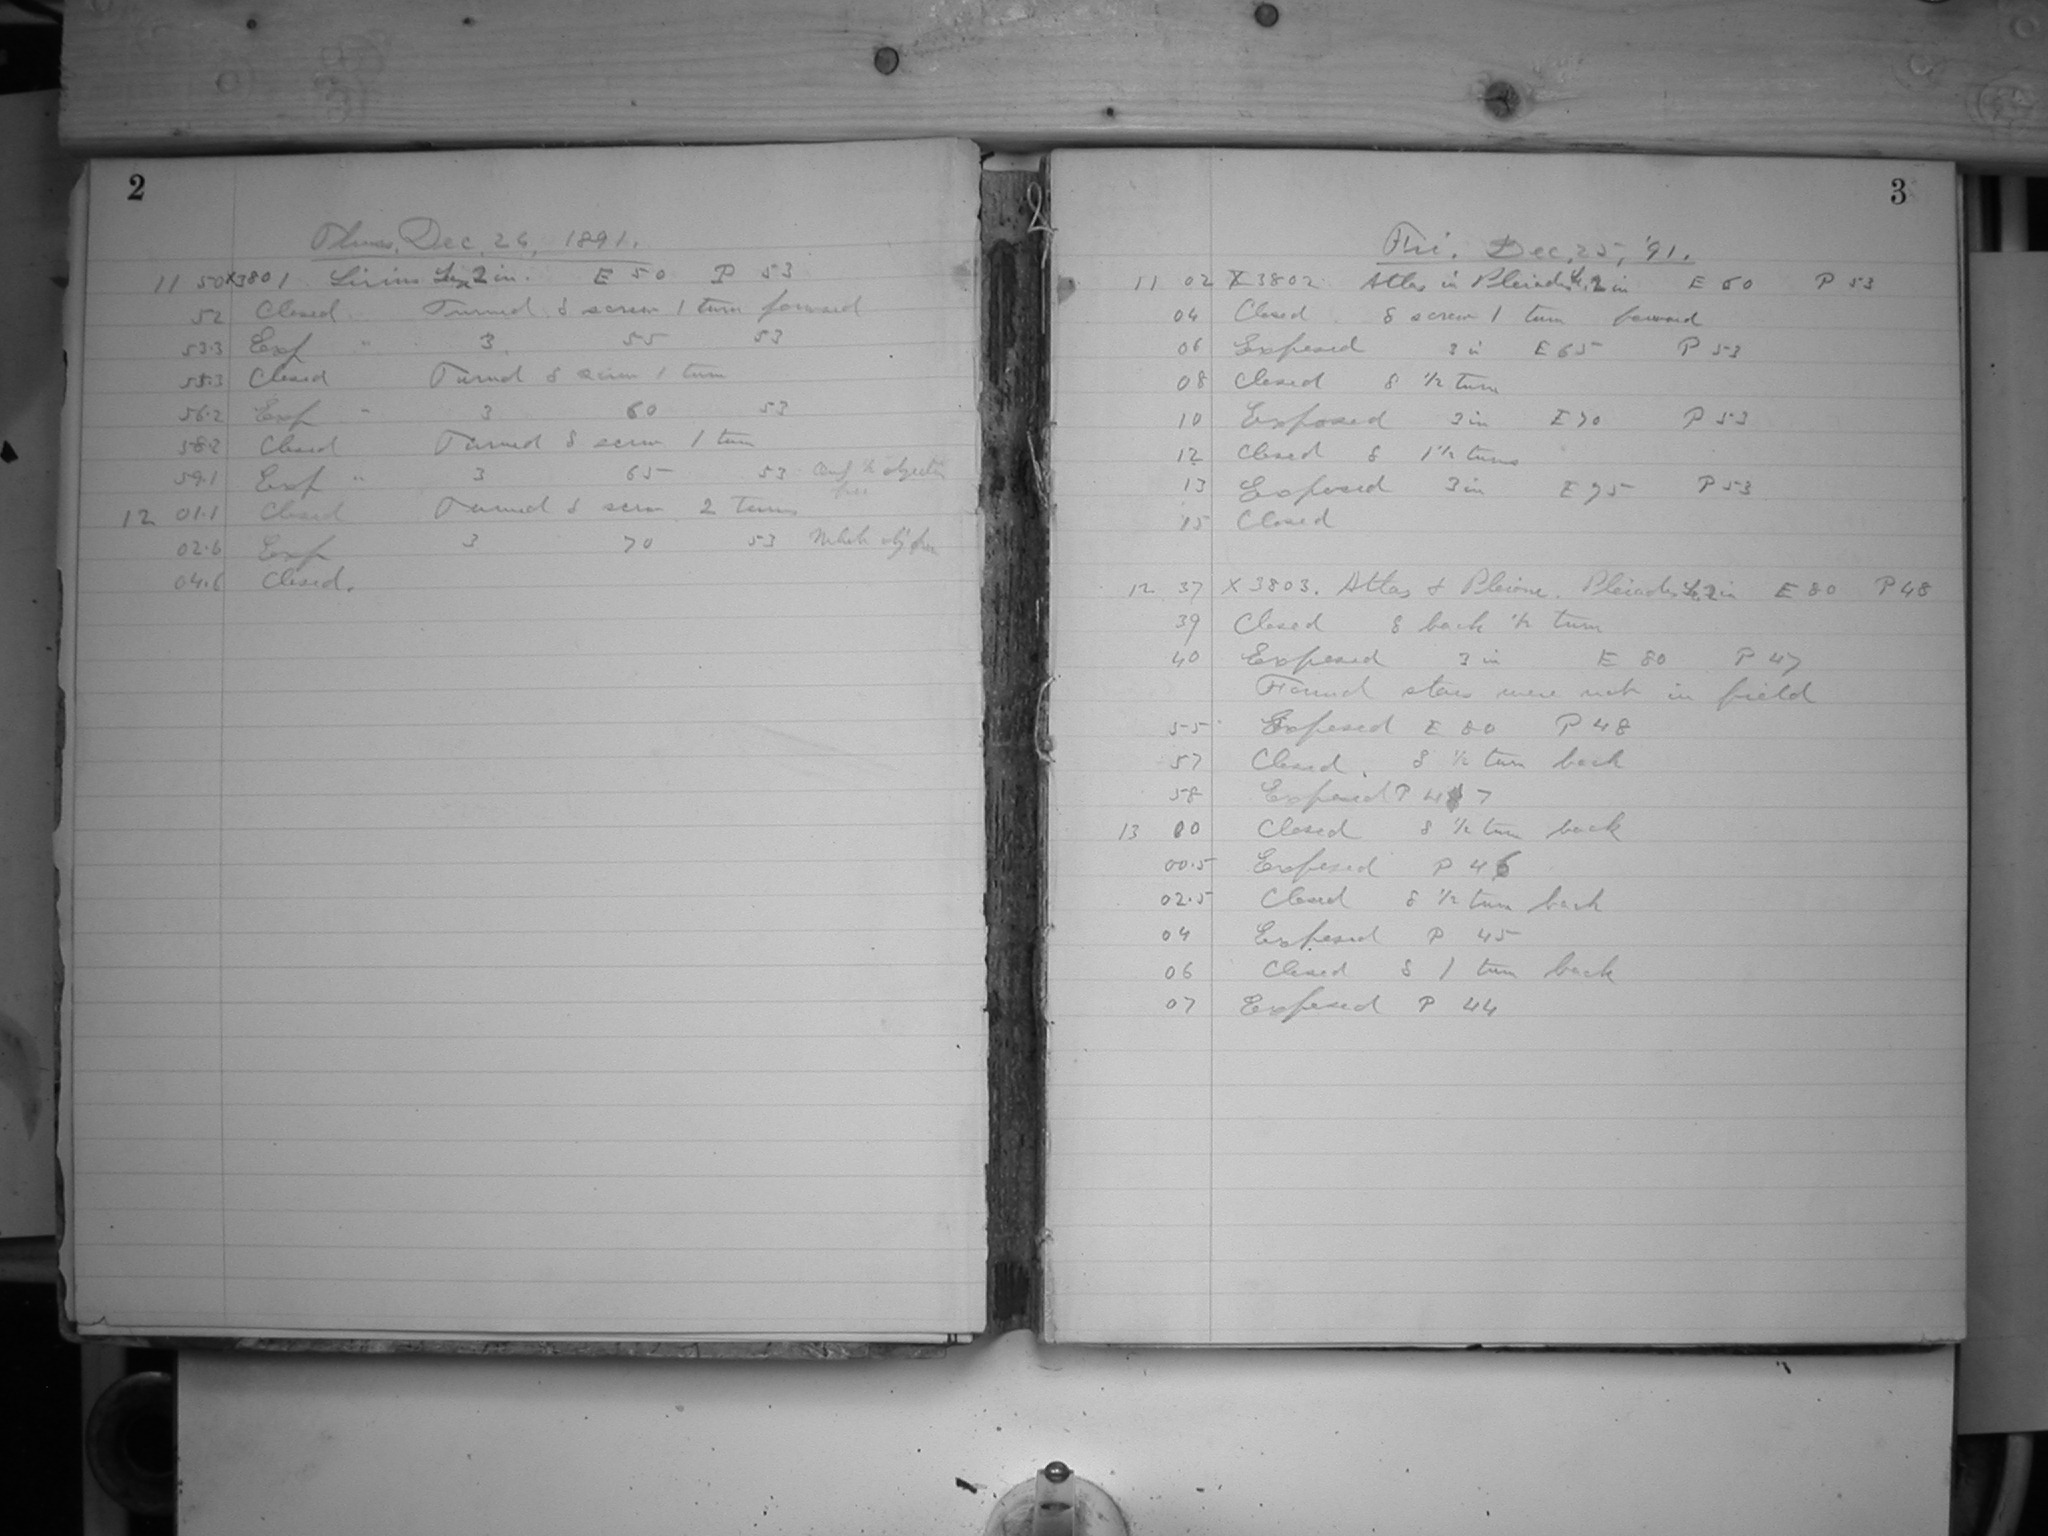 2
Thurs. Dec. 24, 1891.
11 50 X3801. Sirius 2 in. E 50 P 53
52 Closed. Turned δ screw 1 turn forward
53.3 Exp " 3 55 53
55.3 Closed Turned δ screw 1 turn
56.2 Exp " 3 60 53
58.2 Closed Turned δ screw 1 turn
59.1 Exp " 3 65 53 Only ½ objective
free
12 01.1 Closed Turned δ screw 2 turns
02.6 Exp 3 70 53 Whole obj free
04.6 Closed.
3
Fri. Dec. 25, '91.
11 02 X3802 Atlas in Pleiades 2 in E 60 P 53
04 Closed. δ screw 1 turn forward
06 Exposed 3 in E 65 P 53
08 Closed δ ½ turn
10 Exposed 3 in E 70 P 53
12 Closed δ 1½ turns
13 Exposed 3 in E 75 P 53
15 Closed
12 37 X3803. Atlas & Pleione. Pleiades 2 in E 80 P 48
39 Closed δ back ½ turn
40 Exposed 3 in E 80 P 47
Found stars were not in field
55 Exposed E 80 P 48
57 Closed. δ ½ turn back
58 Exposed P 47
13 00 Closed δ ½ turn back
00.5 Exposed P 46
02.5 Closed δ ½ turn back
04 Exposed P 45
06 Closed δ 1 turn back
07 Exposed P 44